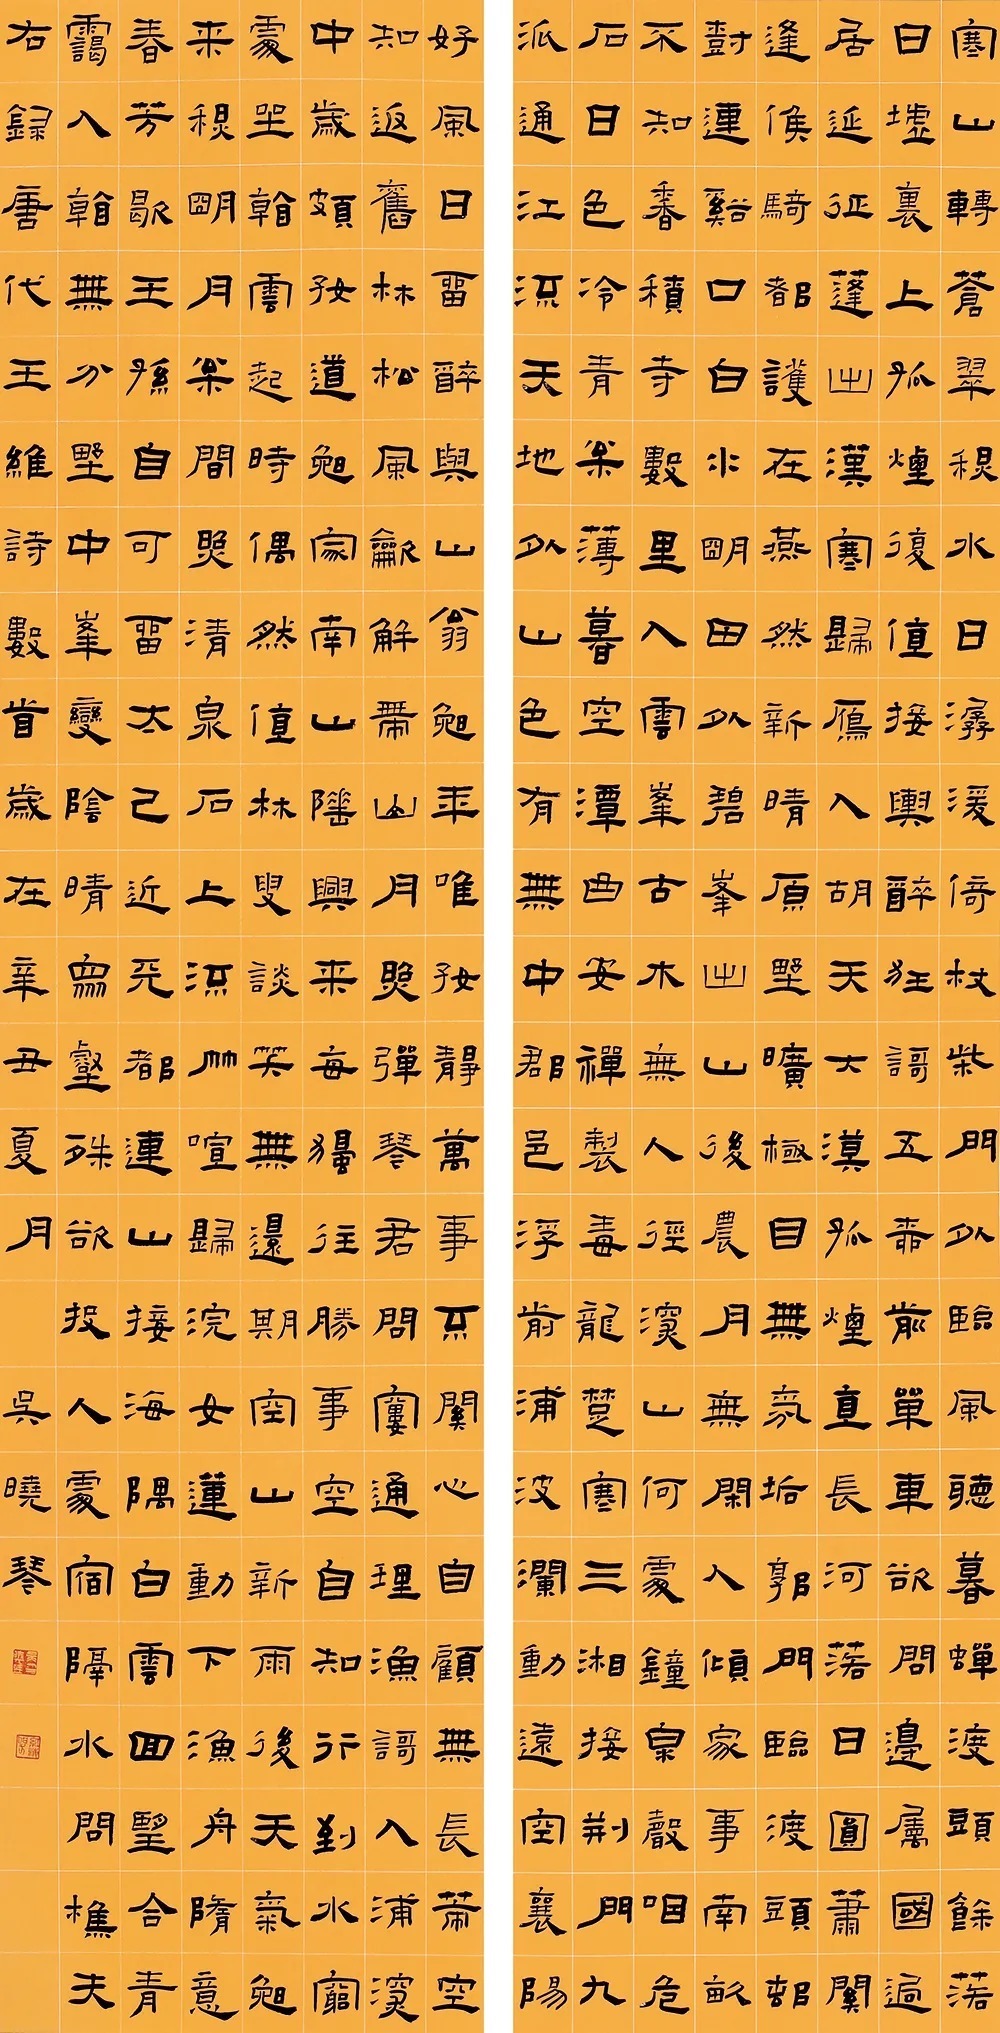 寒山轉蒼翠秋水日潺湲倚杖柴門外臨風聽暮蟬渡頭餘落
日墟裏上孤煙復值接輿醉狂謌五柳前單車欲問邊屬國過
居延征蓬出漢塞歸鴈入胡天大漠孤煙直長河落日圓蕭關
逢候騎都護在燕然新晴原野曠極目無氛垢郭門臨渡頭邨
樹連谿口白水明田外碧峯出山後農月無閑人傾家事南畝
不知香積寺數里入雲峯古木無人徑深山何處鐘泉聲咽危
石日色冷青松薄暮空潭曲安禪製毒龍楚塞三湘接荊門九
派通江流天地外山色有無中郡邑浮前浦波瀾動遠空襄陽
好風日留醉與山翁晚年唯好靜萬事不關心自顧無長策空
知返舊林松風龡解帶山月照彈琴君問窮通理漁謌入浦深
中歲頗好道晚家南山陲興來每獨往勝事空自知行到水窮
處坐看雲起時偶然值林叟談笑無還期空山新雨後天氣晚
来秋明月松間照清泉石上流竹喧歸浣女蓮動下漁舟隨意
春芳歇王孫自可留太乙近天都連山接海隅白雲回望合青
靄入看無分野中峯變陰晴衆壑殊欲投人處宿隔水問樵夫
右録唐代王維詩數首歲在辛丑夏月 吳曉琴